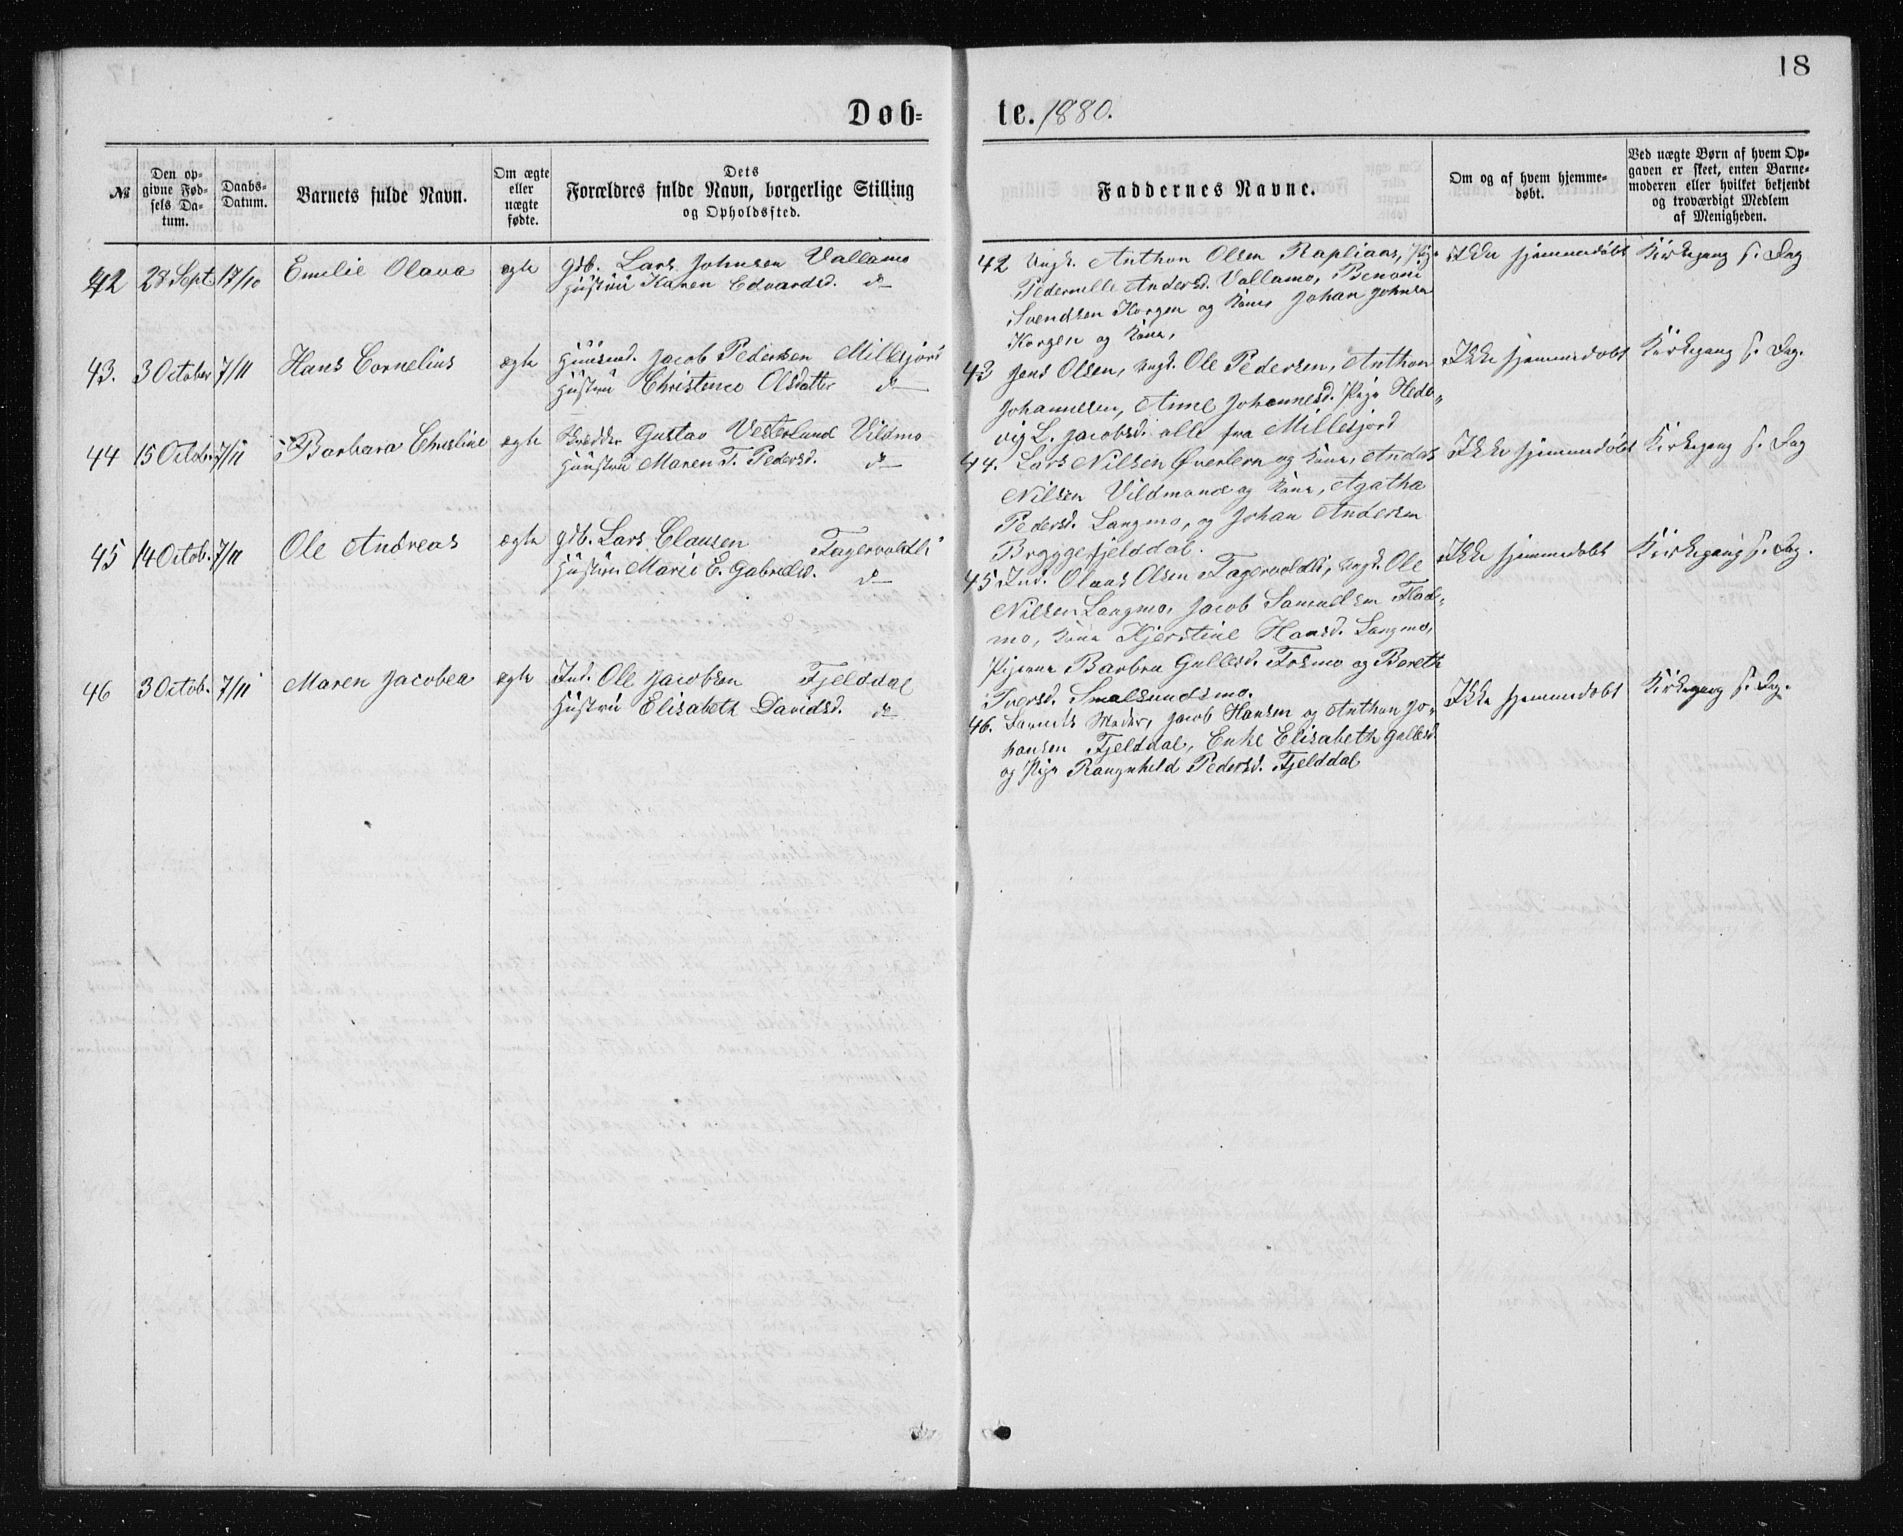 18
Døbte. 1880.
№
Den opgivne Fødsels Datum.
Daabs-Datum.
Barnets fulde Navn.
Om ægte eller uægte fødte.
Dets Forældres fulde Navn, borgerlige Stilling og Opholdssted.
Faddernes Navne.
Om og af hvem hjemmedøbt.
Ved uægte Børn af hvem Opgaven er skeet, enten Barnemoderen eller hvilket bekjendt og troværdigt Medlem af Menigheden.
42 28 Sept 17/10 Emilie Olava ægte Gdb. Lars Johnsen Vallamo
Hustru Karen Edvardsd. do
42 Ungk. Anthon Olsen Rapliaas, Pig.
Pedernille Andersd. Vallamo, Benoni
Svendsen Korgen og Kone, Johan Johnsen
Korgen og Kone,
Ikke hjemmedøbt Kirkegang s. Dag
43. 3 October 7/11 Hans Cornelius ægte Huusmd. Jacob Pedersen Millesjord
Hustru Christence Olsdatter do
43 Jens Olsen, Ungk. Ole Pedersen, Anthon
Johannesen, Anne Johannesd. Pige Hedevig L. Jacobsd. alle fra Millesjord
Ikke hjemmedøbt Kirkegang s. Dag.
44 15 Octob. 7/11 Barbara Christine ægte Gustav Vesterlund Vildmo
Hustru Maren T. Pedersd. do
44. Lars Nilsen Øverlern og Kone, Andas
Nilsen Vildmone og Kone, Agatha
Pedersd. Langmo, og Johan Andersen
Bryggefjelddal.
Ikke hjemmedøbt Kirkegang s. Dag
45 14 Octob. 7/11 Ole Andreas ægte Gdb. Lars Clausen Fagervoldli
Hustru Marie E. Gabrielsd. do
45 Ind. Olaus Olsen Fagervoldli, Ungk. Ole
Nilsen Langmo, Jacob Samuelsen Fladmo, Kone Kjerstine Hansd. Langmo,
Pigerne Barbra Gullesd. Fosmo og Bereth
Iversd. Smalsundsmo.
Ikke hjemmedøbt Kirkegang s. Dag.
46 3 Octob. 7/11 Maren Jacobea ægte Ind. Ole Jacobsen Fjelddal
Hustru Elisabeth Davidsd. do
46. Barnets Moder, Jacob Hansen og Anthon Johansen Fjelddal, Enke Elisabeth Gullesd.
og Pige Rangnhild Pedersd. Fjelddal
Ikke hjemmedøbt Kirkegang s. Dag.